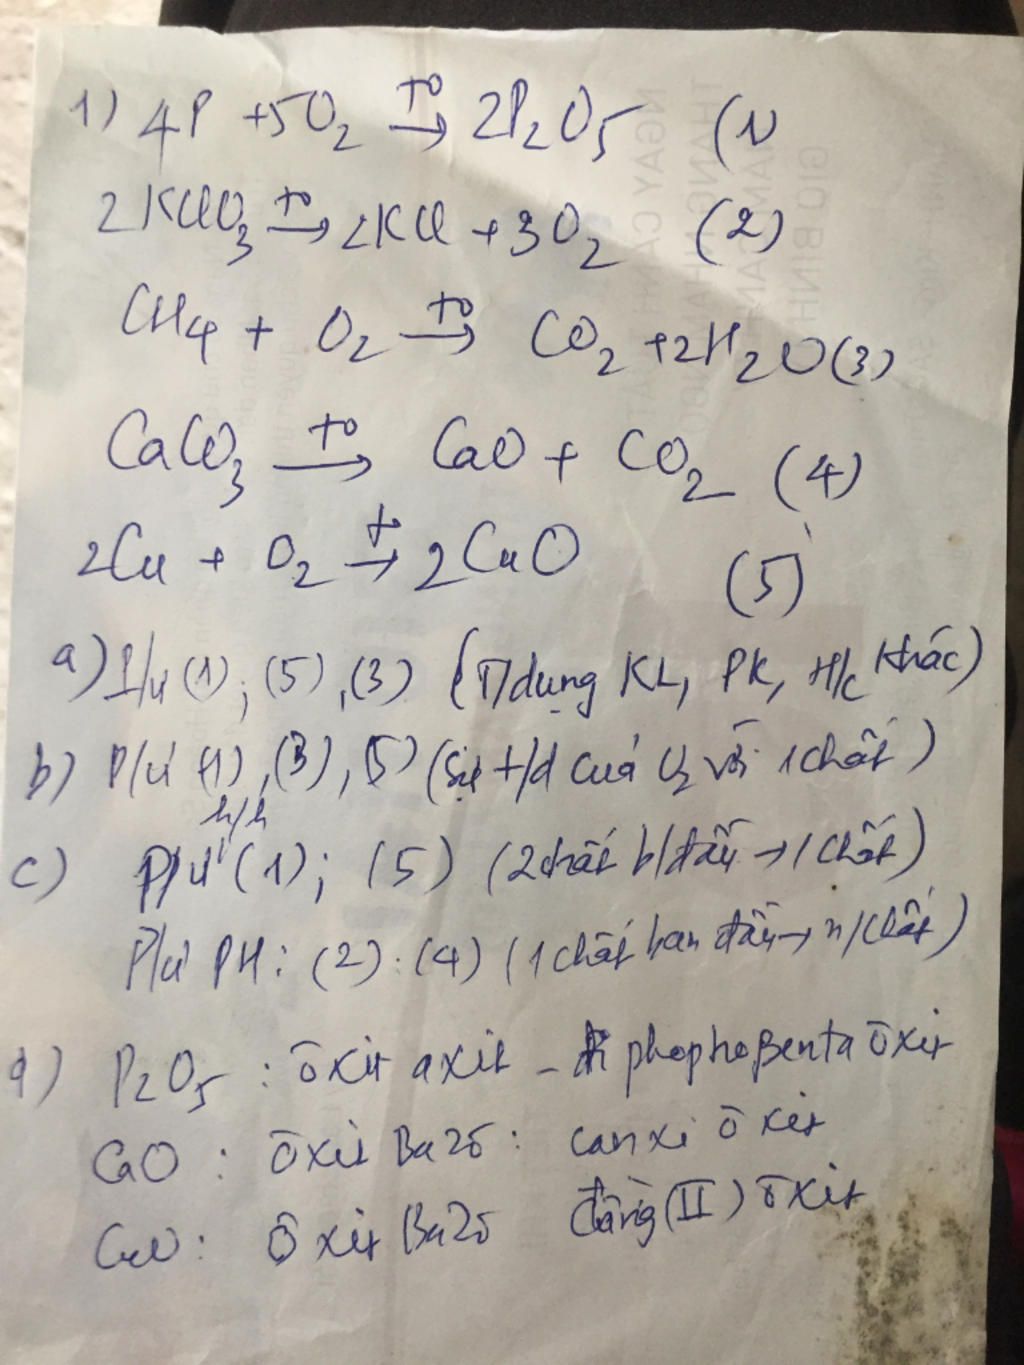 1) 4P + 5O₂ →(t⁰) 2P₂O₅ (1)
2KClO₃ →(t⁰) 2KCl + 3O₂ (2)
CH₄ + O₂ →(t⁰) CO₂ + 2H₂O (3)
CaCO₃ →(t⁰) CaO + CO₂ (4)
2Cu + O₂ →(t⁰) 2CuO (5)
a) P/ứ (1); (5), (3) (T/dụng KL, PK, H/c khác)
b) P/ứ (1), (3), (5) (Sự t/d của O₂ với 1 chất)
h/h
c) P/ứ (1); (5) (2 chất b/đầu → 1 chất)
P/ứ PH: (2). (4) (1 chất ban đầu → n/chất)
d) P₂O₅ : ôxit axit - đi phophopenta ôxit
CaO : ôxit Bazơ : canxi ôxit
CuO : ôxit Bazơ đồng (II) ôxit